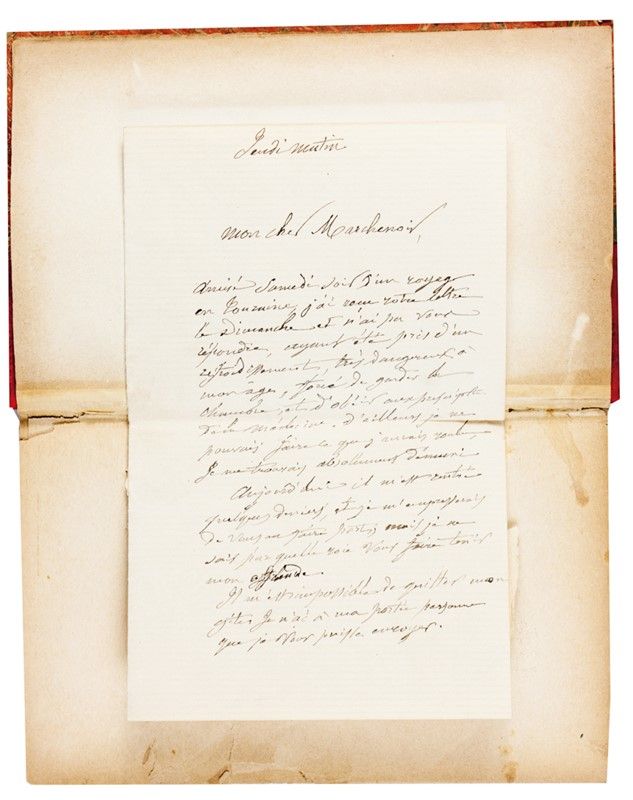 Jeudi matin
Mon cher Marchenoir,
Arrivé Samedi soir d'un voyage
en Touraine, j'ai reçu votre lettre
le Dimanche et n'ai pu vous
répondre, ayant été pris d'un
refroidissement, très dangereux à
mon âge, forcé de garder la
chambre, et d'obéir aux
de la médecine. d'ailleurs je ne
pouvais faire ce que j'aurais voulu,
Je me trouvais absolument démuni
Aujourd'hui il m'est rentré
quelques deniers, et je m'empresserais
de vous en faire part; mais je ne
sais par quelle voie vous faire tenir
mon offrande.
Il m'est impossible de quitter mon
gîte, Je n'ai à ma portée personne
que je vous puisse envoyer.